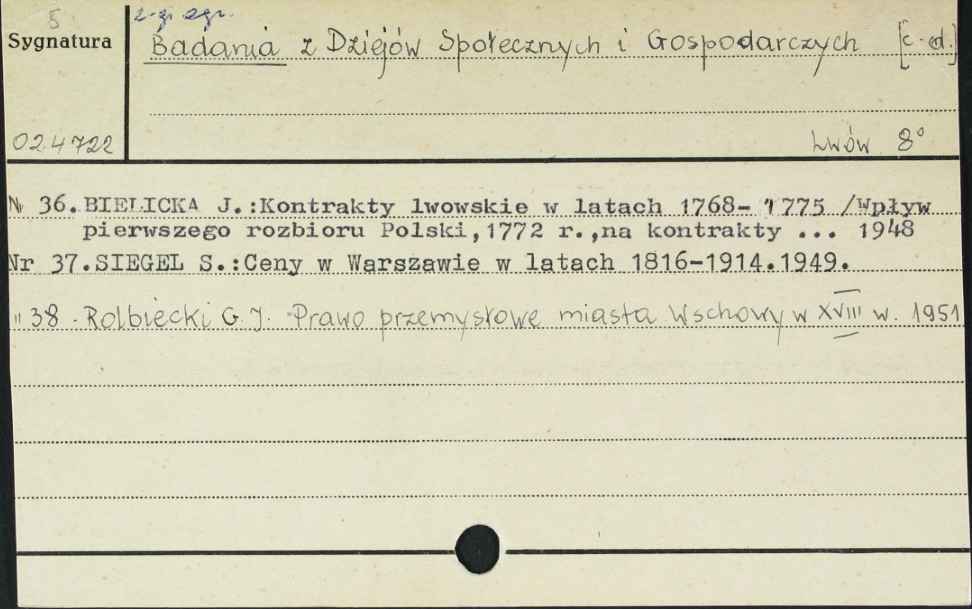 5
2-gi egz.
Sygnatura
Badania z Dziejów Społecznych i Gospodarczych [c.d.]
024722
Lwów 8°
№ 36. BIELICKA J.:Kontrakty lwowskie w latach 1768- 1775 /Wpływ
pierwszego rozbioru Polski,1772 r.,na kontrakty ... 1948
Nr 37.SIEGEL S.:Ceny w Warszawie w latach 1816-1914.1949.
" 38 . Rolbiecki G. J. Prawo przemysłowe miasta Wschowy w XVIII w. 1951